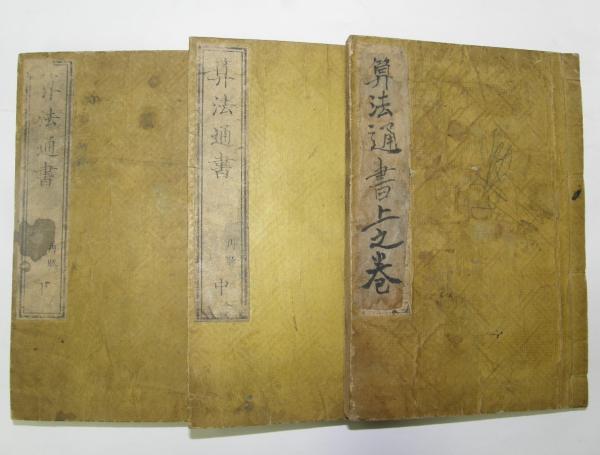 算法通書上之巻
算法通書 再 中
算法通書 再 下